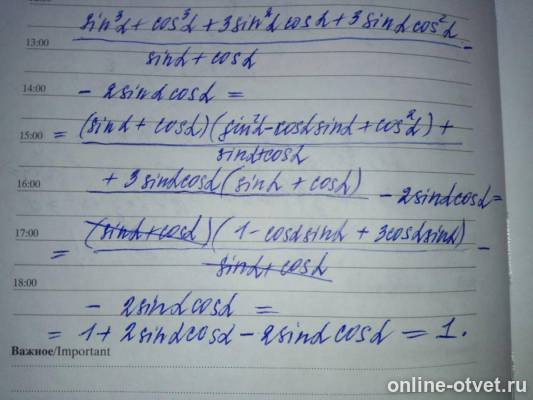 sin³α + cos³α + 3sin²α cosα + 3sinα cos²α
13:00 sinα + cosα -
14:00 - 2sinα cosα =
= (sinα + cosα)(sin²α - cosα sinα + cos²α) +
15:00 sinα+cosα
16:00 + 3sinα cosα (sinα + cosα) - 2sinα cosα =
17:00 = (sinα+cosα)(1 - cosα sinα + 3cosα sinα) -
sinα + cosα
18:00 - 2sinα cosα =
= 1 + 2sinα cosα - 2sinα cosα = 1.
Важное/Important
online-otvet.ru